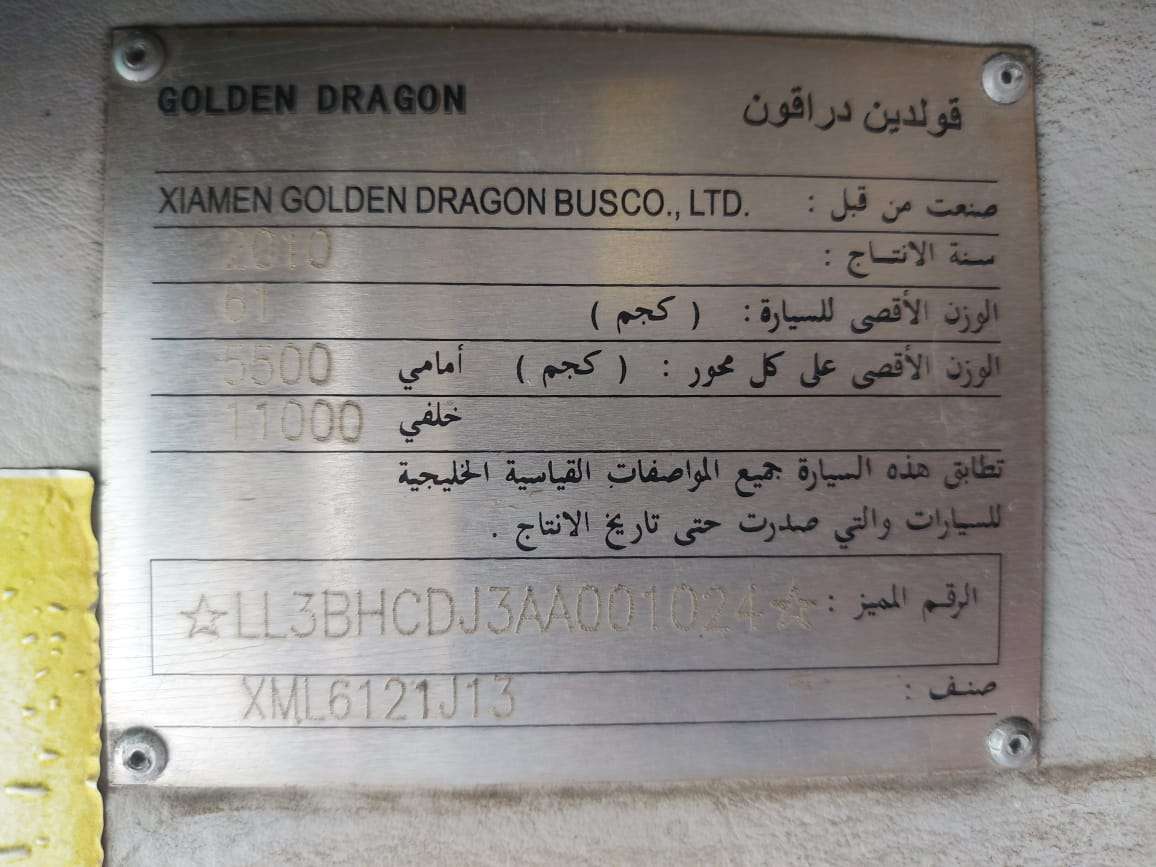 GOLDEN DRAGON قولدين دراقون
صنعت من قبل : XIAMEN GOLDEN DRAGON BUSCO., LTD.
سنة الانتاج : 2010
الوزن الأقصى للسيارة: ( كجم ) 61
الوزن الأقصى على كل محور : ( كجم ) أمامي 5500
خلفي 11000
تطابق هذه السيارة جميع المواصفات القياسية الخليجية
للسيارات والتي صدرت حتى تاريخ الانتاج .
الرقم المميز : ☆LL3BHCDJ3AA001024☆
صنف : XML6121J13